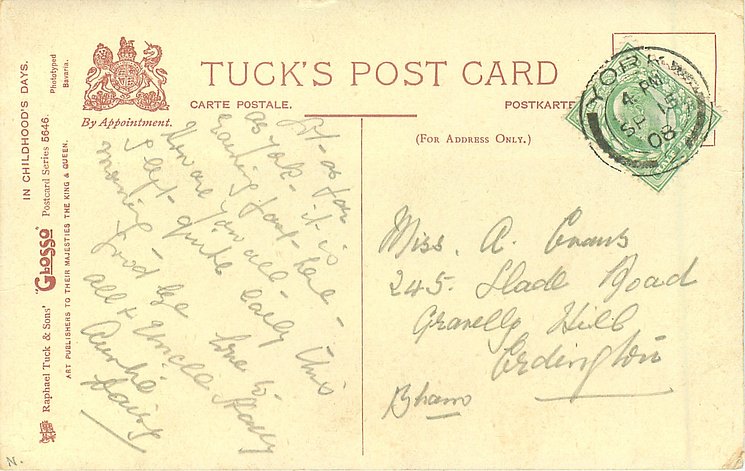 TUCK'S POST CARD
CARTE POSTALE.
POSTKARTE
By Appointment.
(FOR ADDRESS ONLY.)
IN CHILDHOOD'S DAYS.
Phototyped
Bavaria.
Raphael Tuck & Sons' "GLOSSO" Postcard Series 5646.
ART PUBLISHERS TO THEIR MAJESTIES THE KING & QUEEN.
YORK
4 PM
SP
08
as far
as York - it is
here -
How are you all -
I left quite early this
morning -
Good bye love to
all & Uncle Harry
Auntie
Daisy
Miss. A. Evans
245. Slade Road
Gravelly Hill
Erdington
Bham
N.